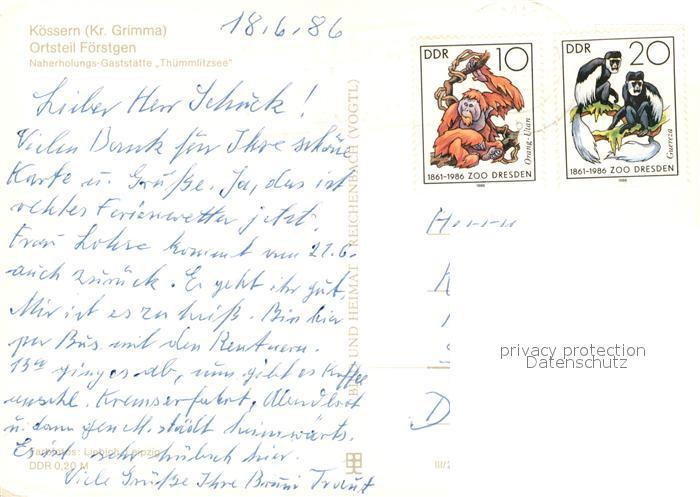 Kössern (Kr. Grimma)
Ortsteil Förstgen
Naherholungs-Gaststätte „Thümmlitzsee"
18.6.86
Lieber Herr Schück!
Vielen Dank für Ihre schöne
Karte u. Grüße. Ja, das ist
echtes Ferienwetter jetzt.
Frau Lohse kommt am 21.6.
auch zurück. Es geht ihr gut.
Mir ist es zu heiß. Bin hier
per Bus mit den Rentnern.
13⁰⁰ ging es ab, nun gibt es Kaffee
anschl. Kremserfahrt, Abendbrot
u. dann gen M. städt heimwärts.
Es ist sehr hübsch hier.
Viele Grüße Ihre
Farbfotos: Liebich, Leipzig
DDR 0,20 M
BILD UND HEIMAT REICHENBACH (VOGTL)
III/2
DDR 10
Orang-Utan
1861-1986 ZOO DRESDEN
1986
DDR 20
Guereza
1861-1986 ZOO DRESDEN
1986
Herrn
D
privacy protection
Datenschutz